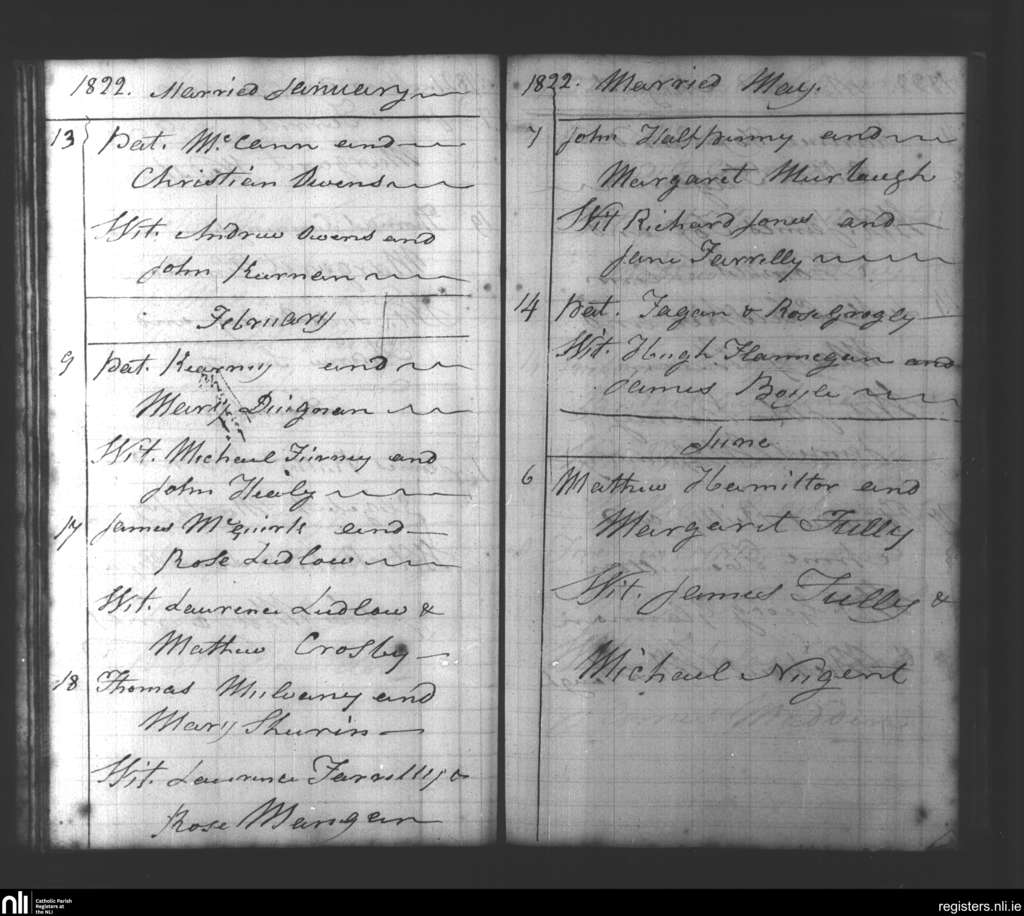 1822. Married January
13 Pat. McCann and
Christian Owens
Wit. Andrew Owens and
John Kernan
February
9 Pat. Kearney and
Mary Duignan
Wit. Michael Finney and
John Healy
17 James McGuirk and
Rose Ludlow
Wit. Laurence Ludlow &
Mathew Crosby
18 Thomas Mulvany and
Mary
Wit. Laurence Farrelly &
Rose Mangan
1822. Married May.
7 John Halfpinny and
Margaret Murtaugh
Wit Richard Jones and
Jane Farrelly
14 Pat. Fagan & Rose Grogly
Wit. Hugh Flannegan and
James Boyle
June
6 Mathew Hamilton and
Margaret Tully
Wit. James Tully &
Michael Nugent
nli
Catholic Parish
Registers at
the NLI
registers.nli.ie